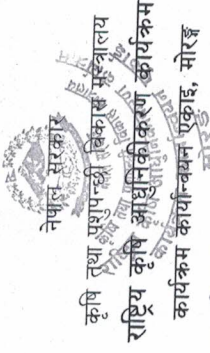 नेपाल सरकार
कृषि तथा पशुपन्छी विकास मन्त्रालय
राष्ट्रिय कृषि आधुनिकीकरण कार्यक्रम
कार्यक्रम कार्यान्वयन एकाइ, मोरङ्ग